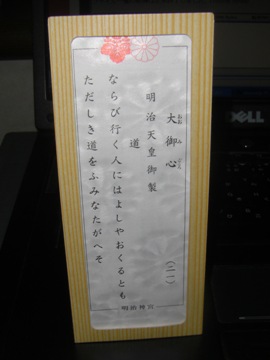 大御心
明治天皇御製
（二一）
道
ならび行く人にはよしやおくるとも
ただしき道をふみなたがへそ
明治神宮
DELL